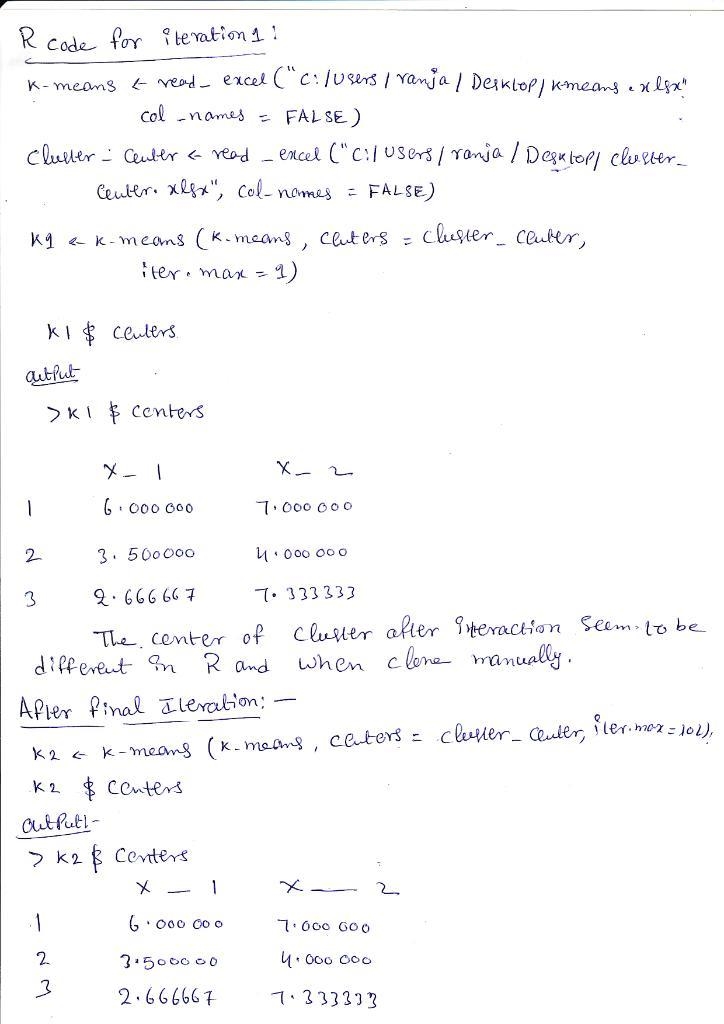 R code for iteration 1:
k-means ← read_excel ("C:/Users/ranja/Desktop/kmeans.xlsx"
col_names = FALSE)
Cluster_Center ← read_excel ("C:/Users/ranja/Desktop/cluster_
Center.xlsx", col_names = FALSE)
K1 ← k-means (k-means, centers = cluster_center,
iter.max = 1)
K1 $ centers
output
> K1 $ centers
X_1 X_2
1 6.000000 7.000000
2 3.500000 4.000000
3 2.666667 7.333333
The center of cluster after interaction seem to be
different in R and when clone manually.
After final Iteration:-
K2 ← k-means (k-means, centers = cluster_center, iter.max=102),
K2 $ centers
output:-
> K2 $ Centers
X_1 X_2
1 6.000000 7.000000
2 3.500000 4.000000
3 2.666667 7.333333